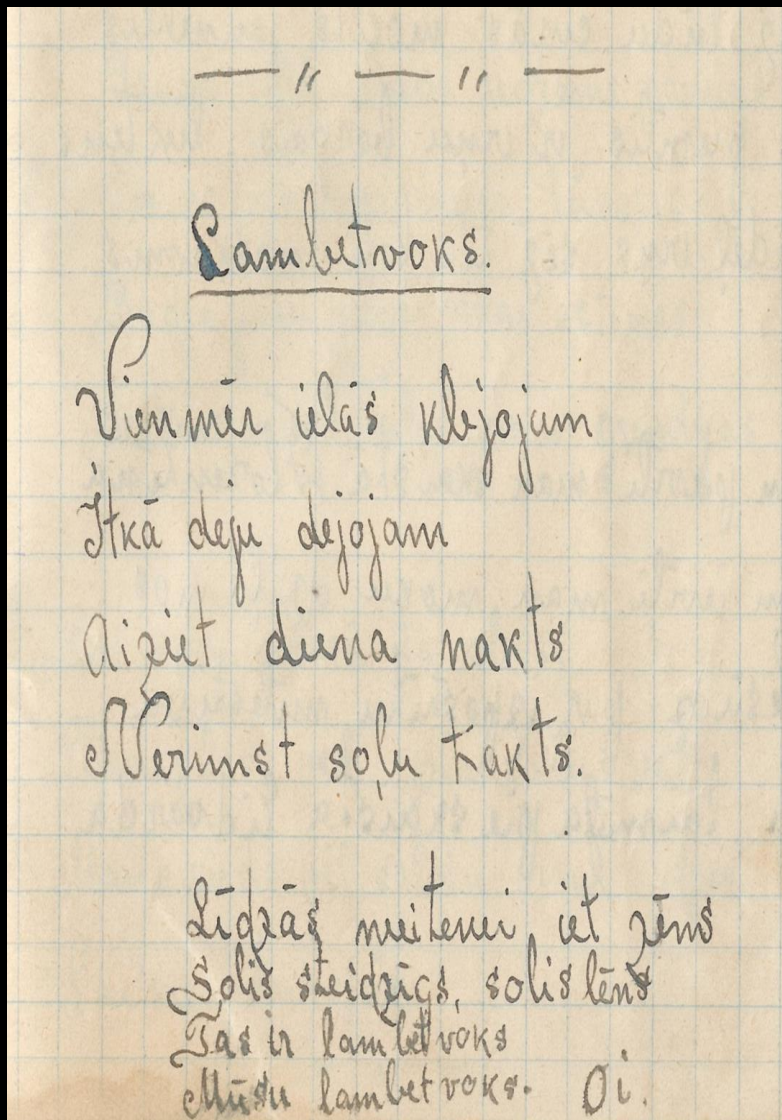 — " — " —
Lambetvoks.
Vienmēr ielās klejojam
Itkā deju dejojam
Aiziet diena nakts
Nerimst soļu takts.
Līdzās meitenei iet zēns
Solis steidzīgs, solis lēns
Tas ir lambetvoks
Mūsu lambetvoks. Oi.